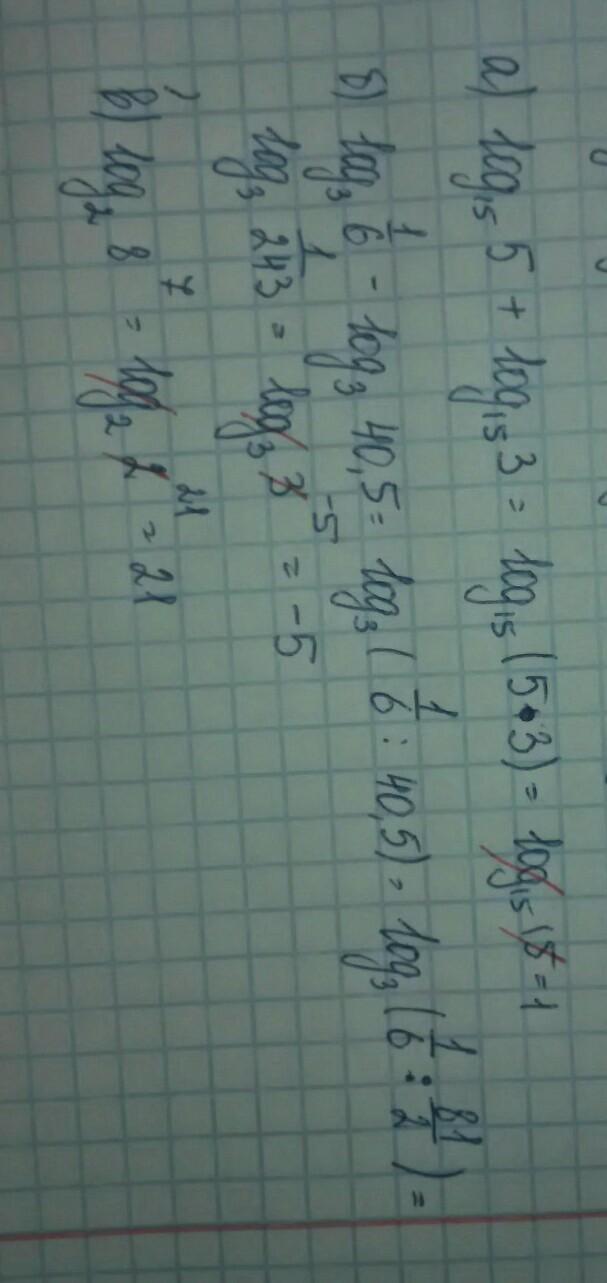 а) log₁₅ 5 + log₁₅ 3 = log₁₅ (5 • 3) = log₁₅ 15 = 1
б) log₃ 1/6 - log₃ 40,5 = log₃ (1/6 : 40,5) = log₃ (1/6 : 81/2) =
log₃ 1/243 = log₃ 3⁻⁵ = -5
в) log₂ 8⁷ = log₂ 2²¹ = 21